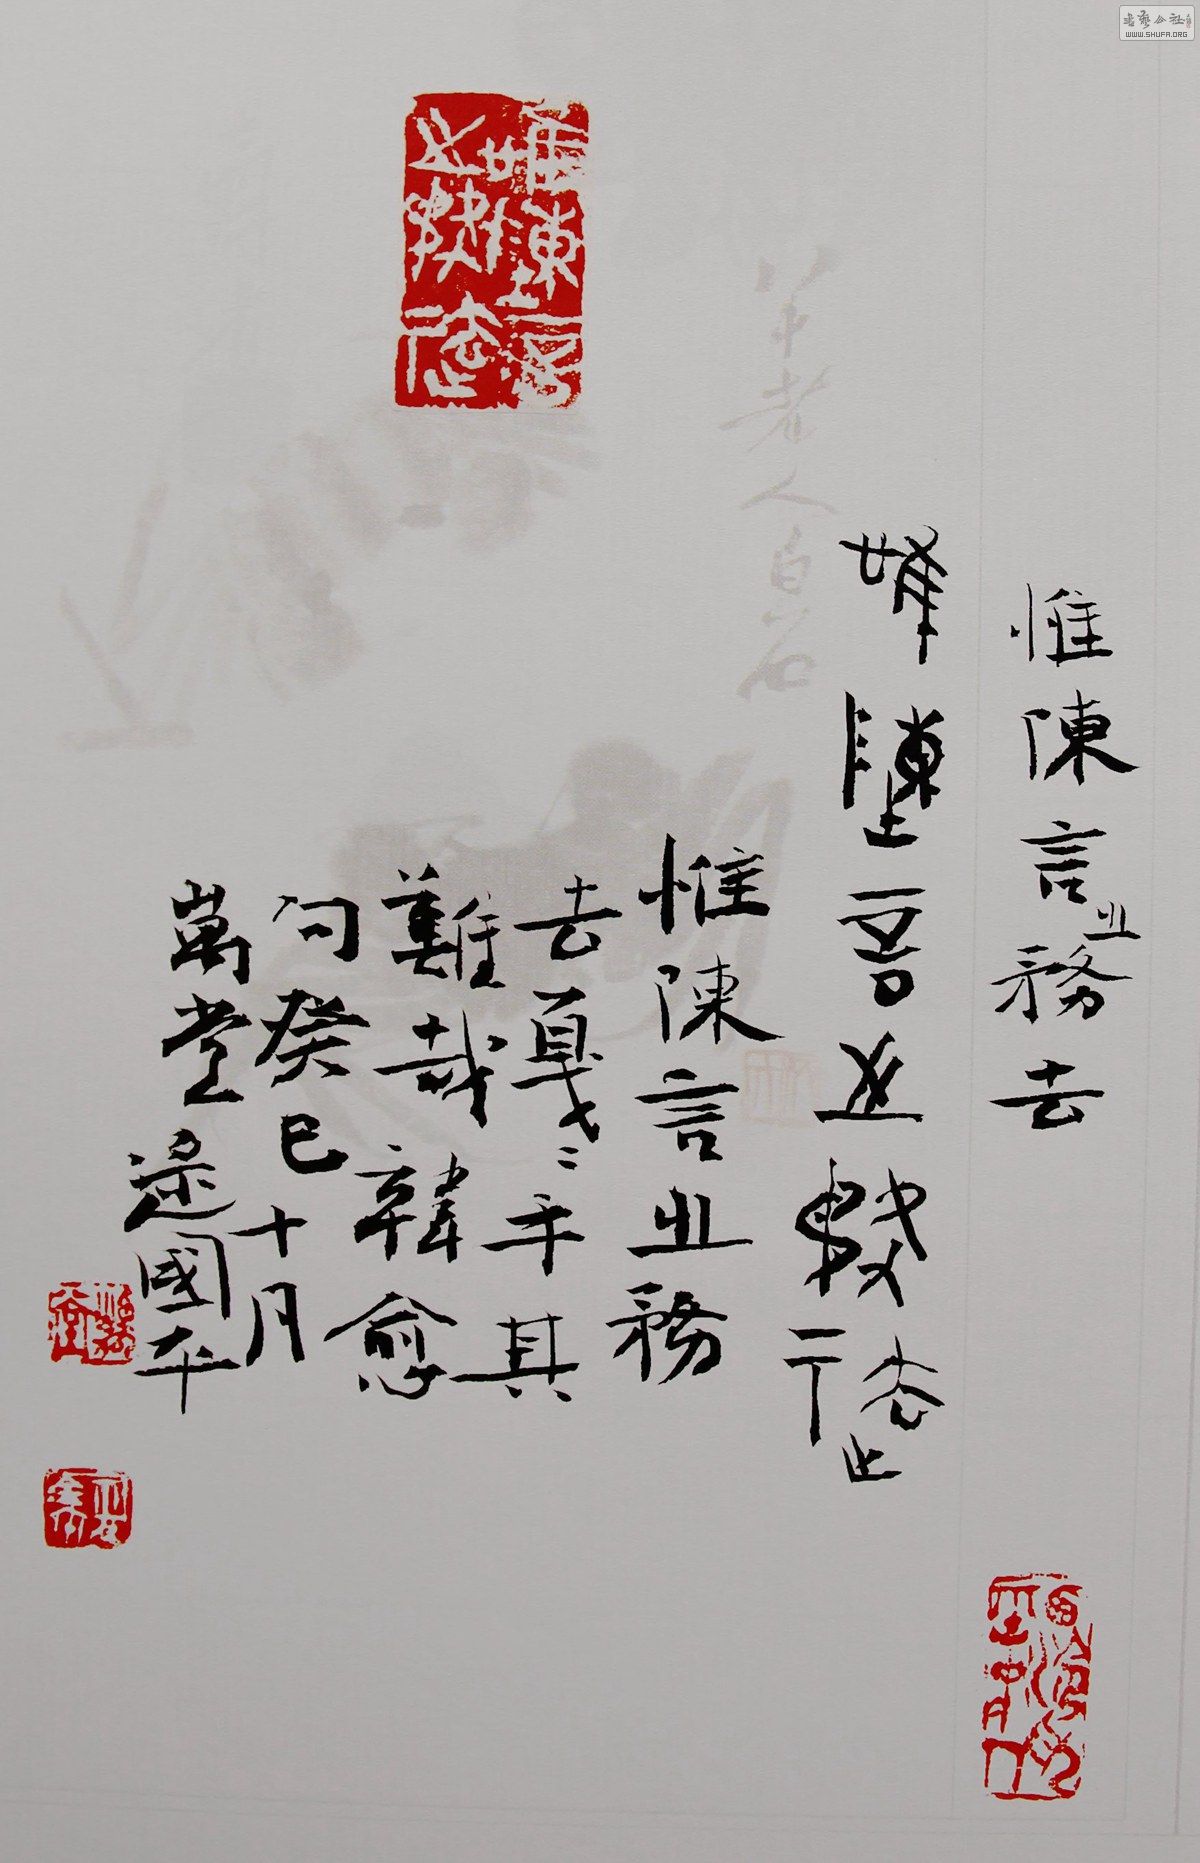 惟陳言业務去
唯陳言业務去
惟陳言业務
去戛〻乎其
難哉韓愈
句癸巳十月
萬堂逯國平
年老人白石
書藝公社
WWW.SHUFA.ORG